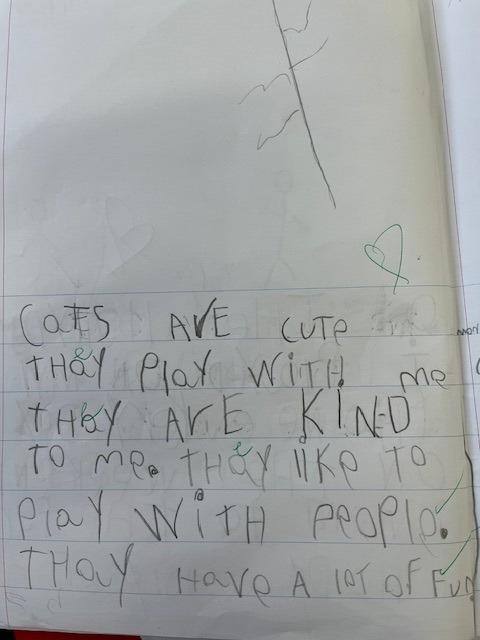 CaTS ARE CUTe
THay Play WiTH me
THay ARE KIND
TO me. THay lIKe TO
Play WiTH PeoPle.
THay Have A lOT OF FUN